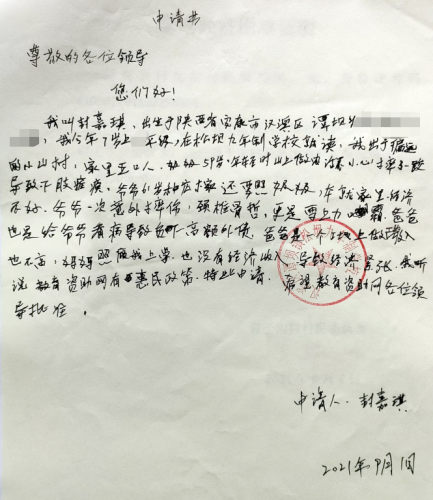 申请书
尊敬的各位领导
您们好!
我叫封嘉琪,出生于陕西省安康市汉滨区谭坝乡
,我今年7岁上一年级,在松坝九年制学校就读,我出于偏远
的小山村,家里五口人,奶奶59岁年轻时山上做活不小心摔了一跤
导致下肢瘫痪,爷爷61岁
还要照奶奶,本就家里经济
不好。爷爷一次意外摔伤,颈椎骨折,更是雪上加霜,爸爸
也是给爷爷看病导致负下高额外债,爸爸是一个
地上做
收入
也不高,妈妈照顾我上学,也没有经济收入,导致经济
紧张。我听
说教育资助网有惠民政策。特此申请,希望教育资助网各位领
导批准。
申请人:封嘉琪
2021年9月1日